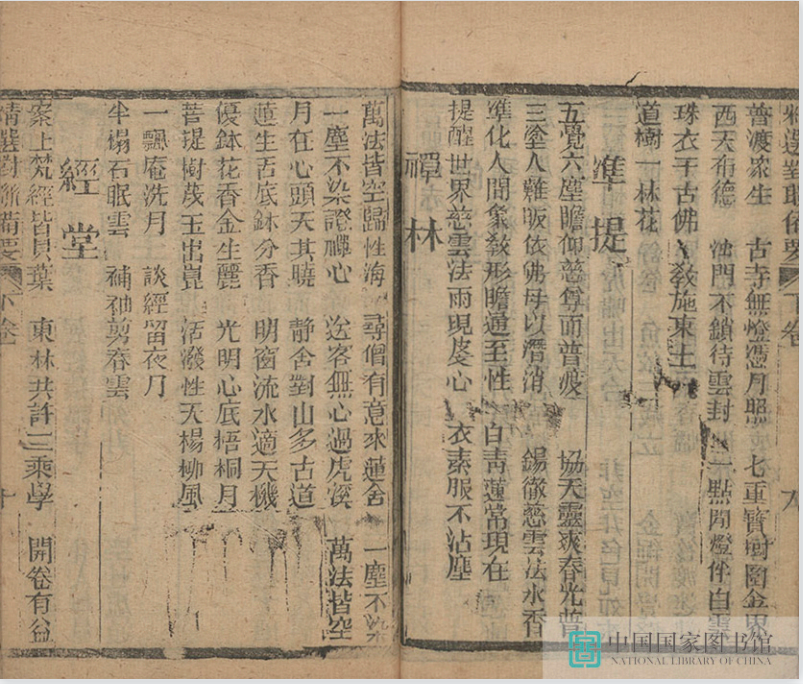 精選對聯備要 下卷 九
普渡眾生 古寺無燈憑月照 七重寶樹圍金界
西天布德 洞門不鎖待雲封 一點閒燈伴白雲
珠衣千古佛 教施東土
道樹一林花
準提
五覺六塵瞻仰慈尊而普渡 協天靈爽春光普
三塗人難皈依佛母以潛消 錫徹慈雲法水香
準化人間象教形瞻通至性 白青蓮常現在
提醒世界慈雲法雨現皮心 衣素服不沾塵
禪林
萬法皆空歸性海 尋僧有意來蓮舍 一塵不染
一塵不染證禪心 送客無心過虎溪 萬法皆空
月在心頭天其曉 静舍對山多古道
蓮生舌底鉢分香 明窗流水適天機
優鉢花香金生麗 光明心底梧桐月
菩提樹茂玉出崑 活潑性天楊柳風
一瓢庵洗月 談經留夜月
半榻石眠雲 補衲剪春雲
經堂
案上梵經皆貝葉 東林共許三乘學 開卷有益
精選對聯備要 下卷 十
中国国家图书馆
NATIONAL LIBRARY OF CHINA